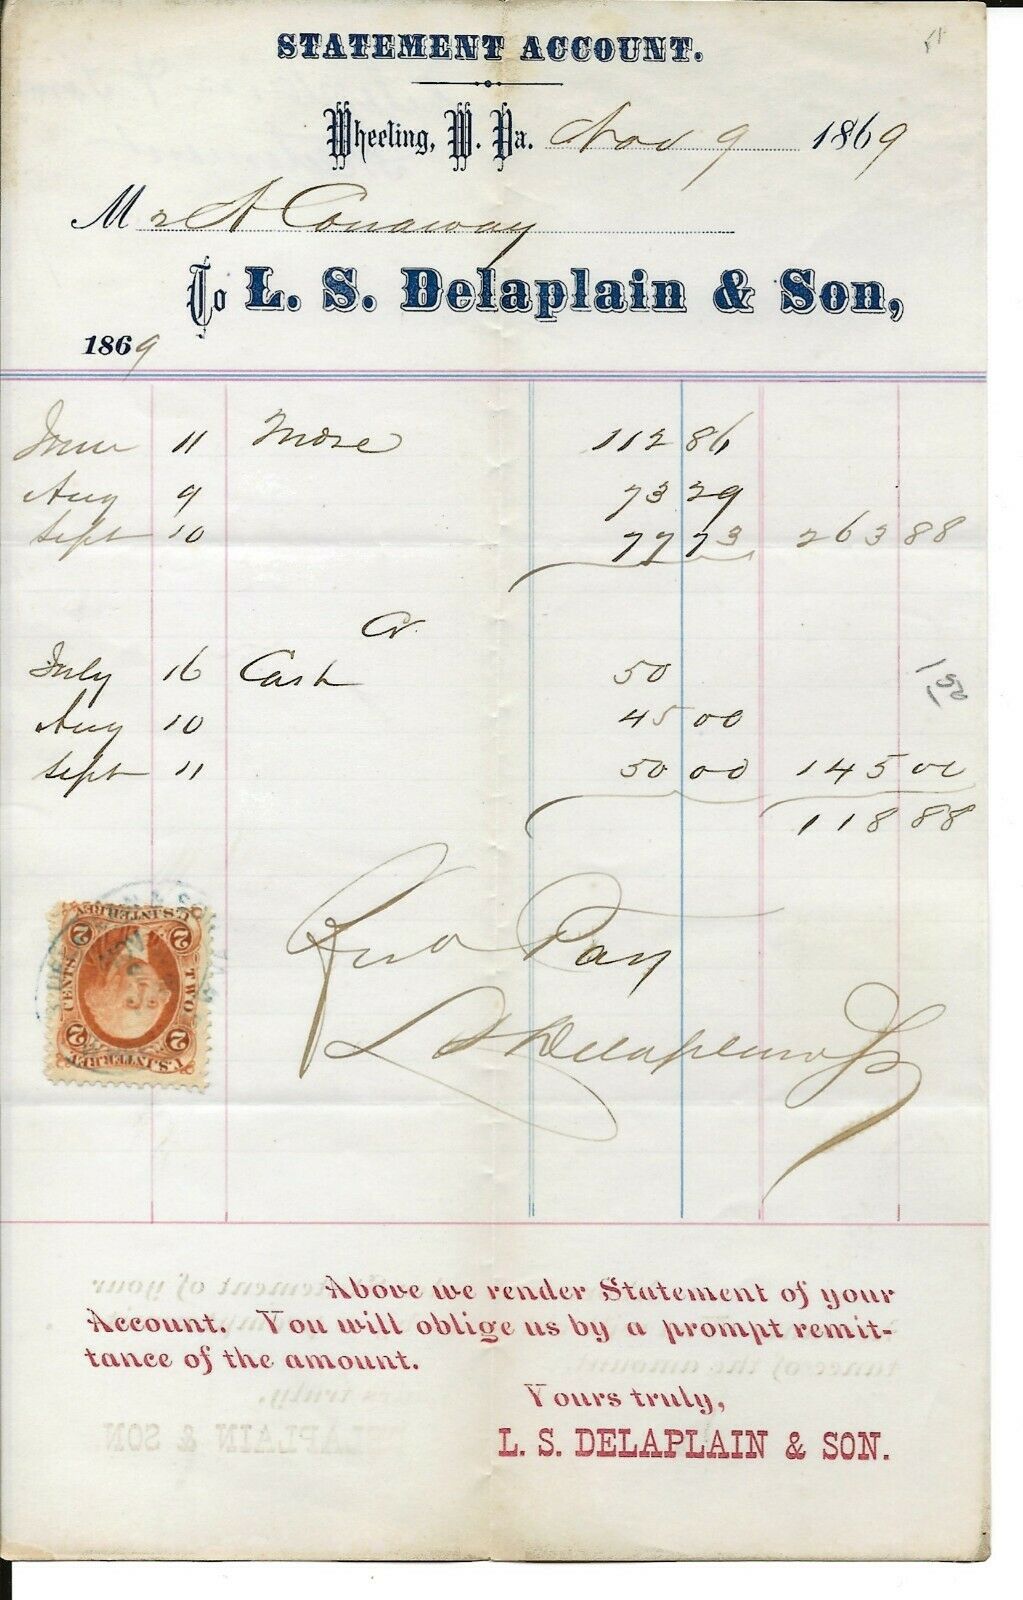 STATEMENT ACCOUNT.
Wheeling, W. Va. Nov 9 1869
Mr A Conaway
To L. S. Delaplain & Son,
1869
June 11 Mdse 112 86
Aug 9 73 29
Sept 10 77 73 263 88
Cr.
July 16 Cash 50
1.50
Aug 10 45 00
Sept 11 50 00 145 00
118 88
Recd Pay
L S Delaplain & Son
U.S. INTER. REV.
2 2
CENTS TWO
2 2
U.S. INTER. REV.
Above we render Statement of your
Account. You will oblige us by a prompt remit-
tance of the amount.
Yours truly,
L. S. DELAPLAIN & SON.